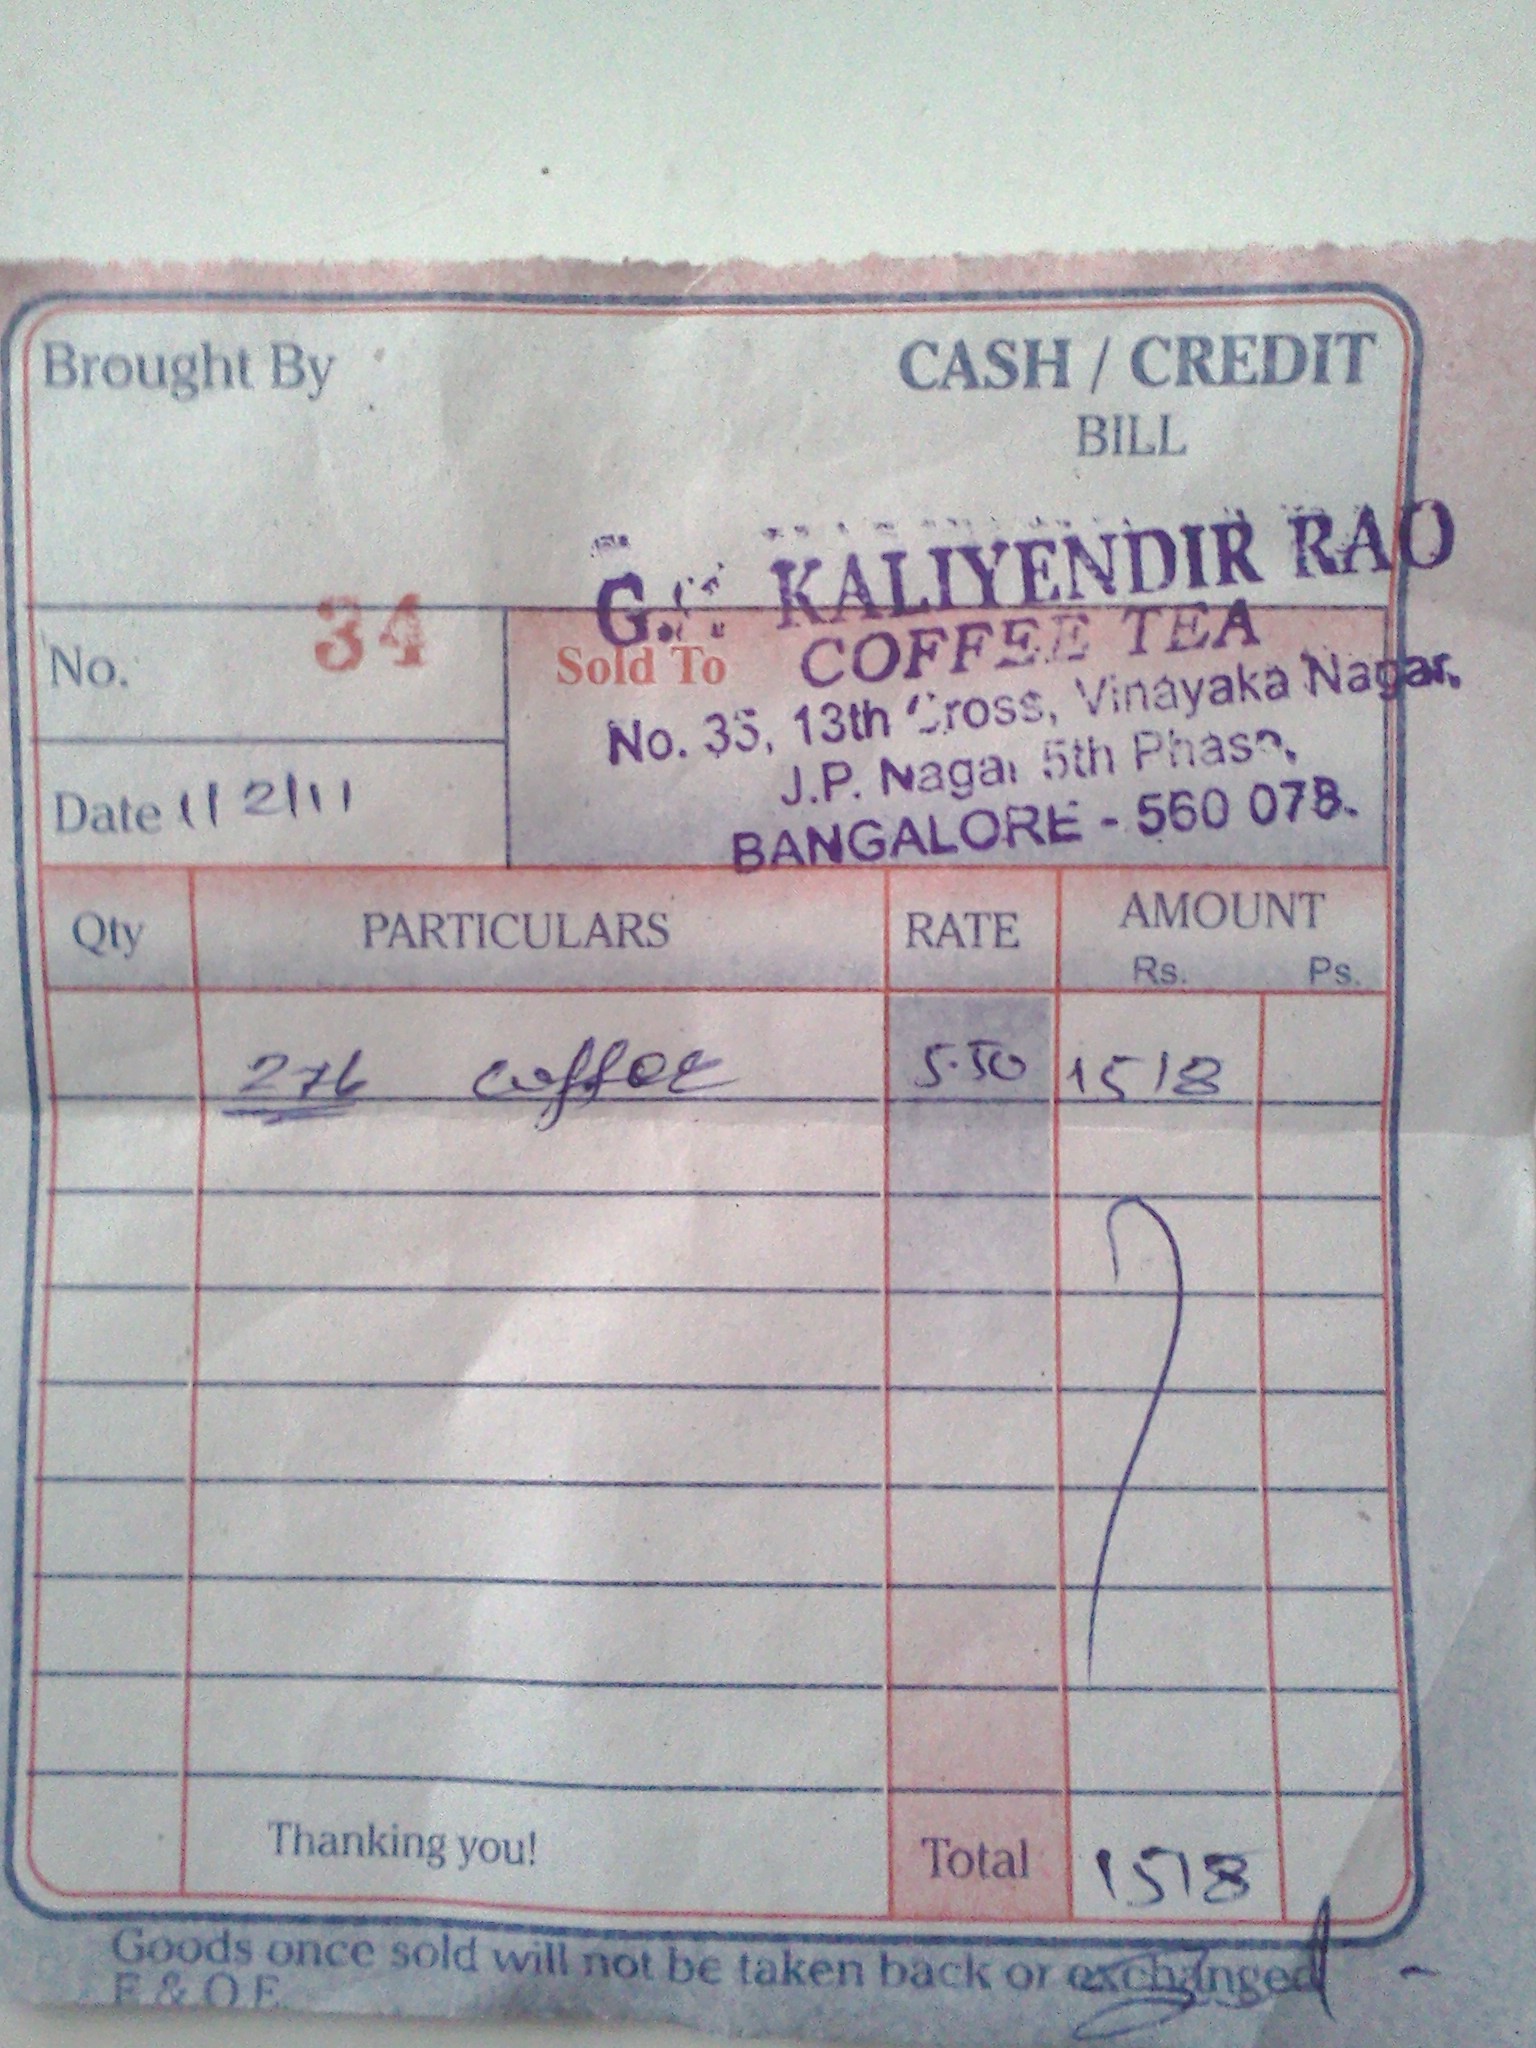 Brought By
CASH / CREDIT
BILL
G. KALIYENDIR RAO
COFFEE TEA
No. 34
Sold To
No. 35, 13th Cross, Vinayaka Nagar,
J.P. Nagar 5th Phase,
BANGALORE - 560 078.
Date 1/2/11
Qty PARTICULARS RATE AMOUNT
Rs. Ps.
276 coffee 5.50 1518
Thanking you! Total 1518
Goods once sold will not be taken back or exchanged
E & O.E.